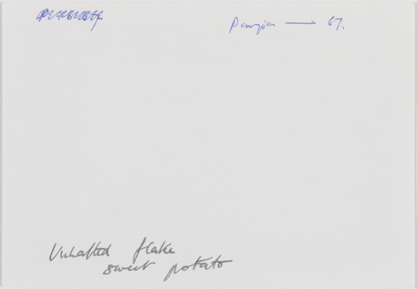 Pangia — 67.
Unhafted flake
sweet potato